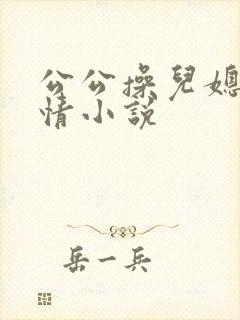 公公操兒媳
情小說
岳一兵